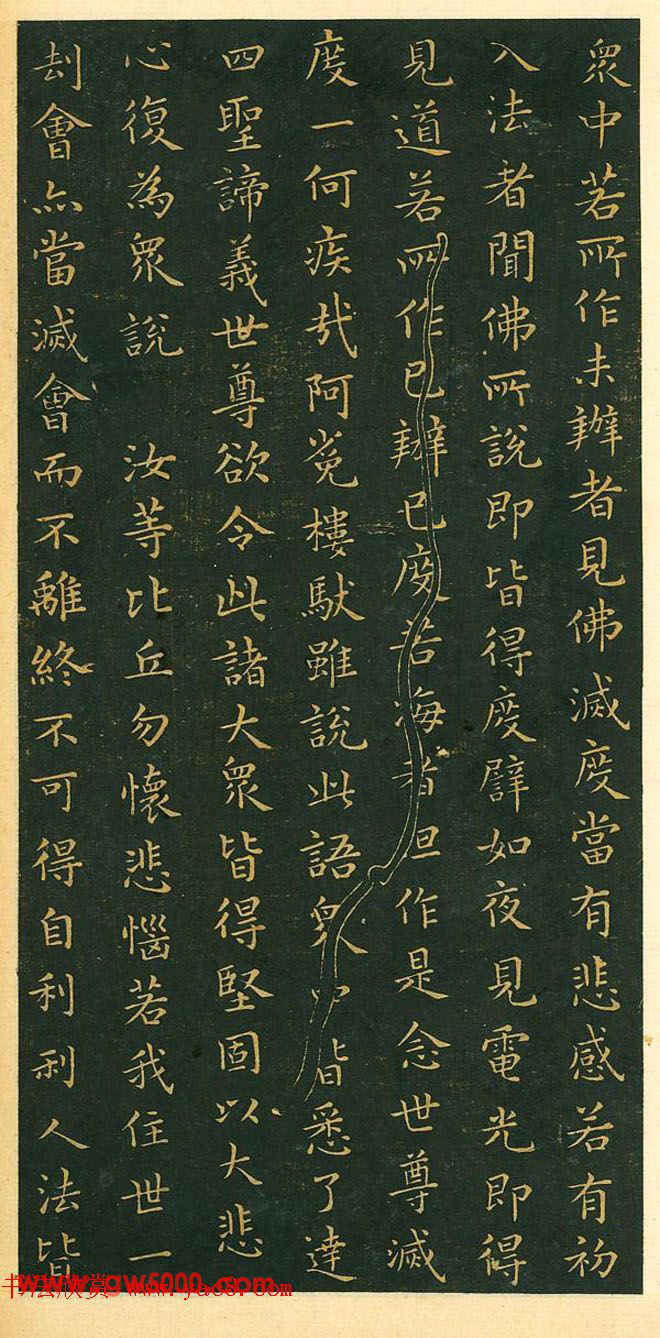 眾中若所作未辦者見佛滅度當有悲感若有初
入法者聞佛所說即皆得度譬如夜見電光即得
見道若所作已辦已度苦海者但作是念世尊滅
度一何疾哉阿㝹樓馱雖說此語眾中皆悉了達
四聖諦義世尊欲令此諸大眾皆得堅固以大悲
心復為眾說 汝等比丘勿懷悲惱若我住世一
刦會亦當滅會而不離終不可得自利利人法皆
书法欣赏 www.yac8.com
www.gw5000.com